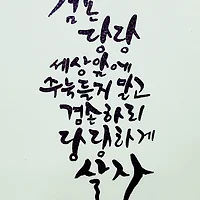 겸손
당당
세상앞에
주눅들지 말고
겸손하되
당당하게
살자